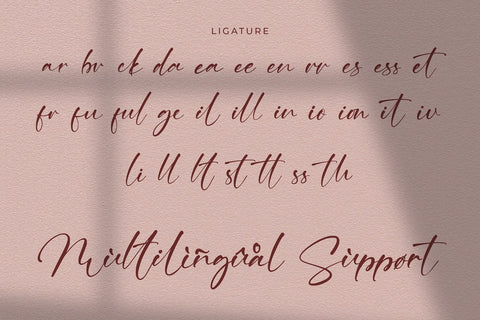 LIGATURE
ar br ck da ea ee en rr es ess et
fr fu ful ge il ill in io ion it iv
li ll lt st tt ss th
Mùltilìñgûål Sùppört